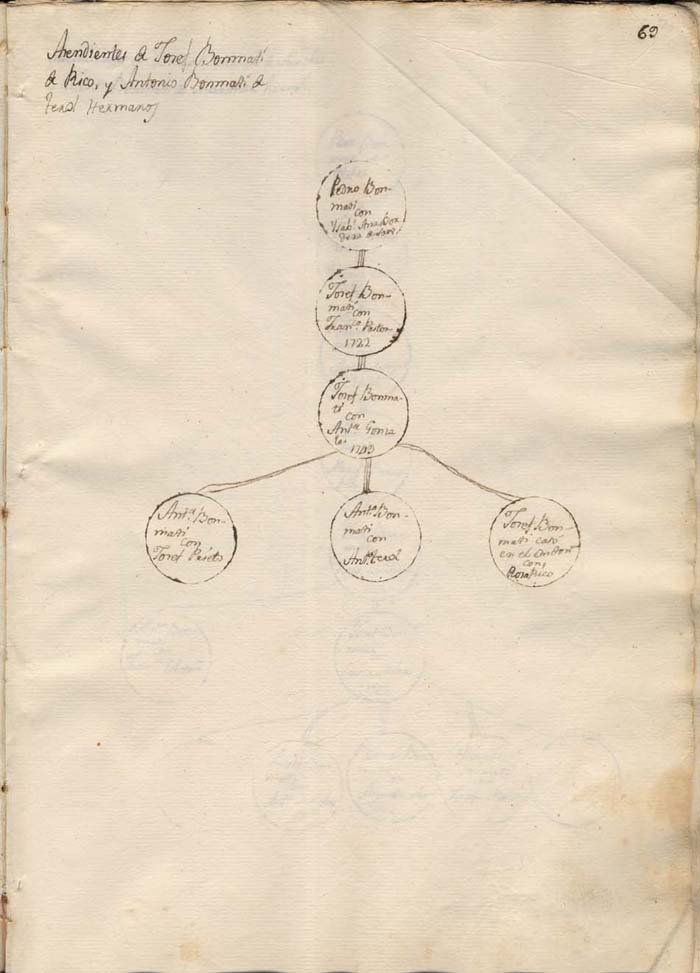 69
Asendientes de Josef Bonmati
de Rico, y Antonio Bonmati de
Terol Hermanos
Pedro Bon-
mati
con
Isabl. Ana
Josef Bon-
mati
con
Franca. Pastor
1722
Josef Bonma-
ti
con
Anta. Gonza
les
Anta. Bon-
mati
con
Josef Prieto
Anto. Bon-
mati
con
Anta. Terol
Josef Bon-
mati casó
en el
con
Rosa Rico